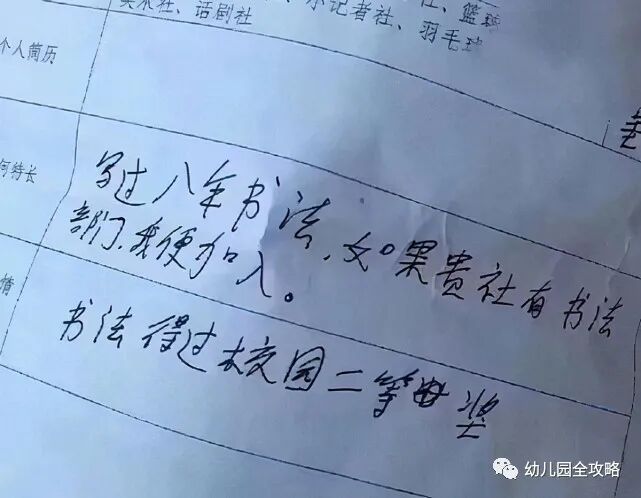 美术社、话剧社、小记者社、羽毛球
个人简历
何特长
写过八年书法,如果贵社有书法
部门,我便加入。
情
书法得过校园二等奖
幼儿园全攻略